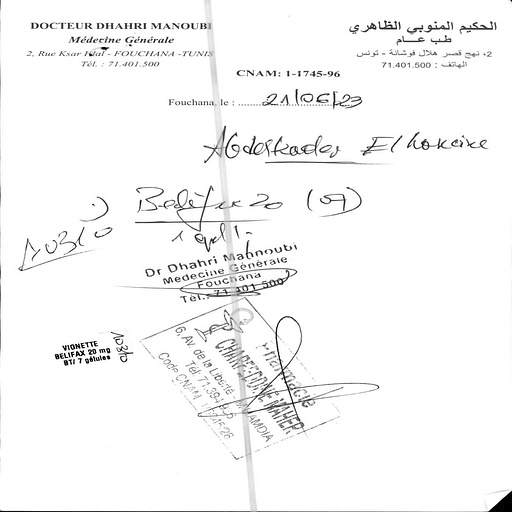 DOCTEUR DHAHRI MANOUBI
Médecine Générale
2, Rue Ksar Hlal - FOUCHANA -TUNIS
Tél. : 71.401.500
الحكيم المنوبي الظاهري
طب عـــام
2، نهج قصر هلال فوشانة - تونس
الهاتف : 71.401.500
CNAM: 1-1745-96
Fouchana, le : 21/06/23
Abdelkader El
Belifax 20 (07)
1 gel/j.
10310
Dr Dhahri Mannoubi
Medecine Générale
Fouchana
Tél.: 71 401 500
VIONETTE
BELIFAX 20 mg
BT/ 7 gélules
Pharmacie
CHARFEDDINE MAHER
6, Av. de la Liberté
Tél: 71.394
Code CNAM